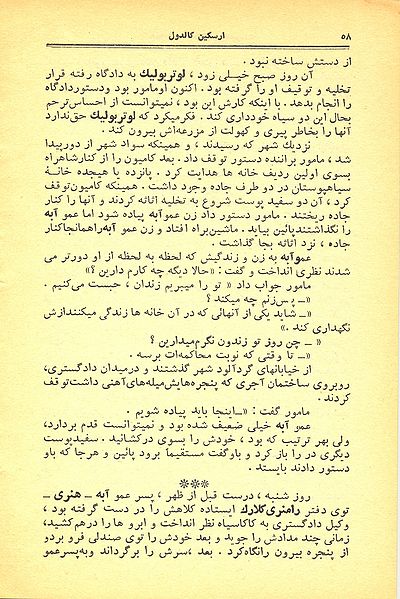 ۵۸
ارسکین کالدول
از دستش ساخته نبود .
آن روز صبح خیلی زود ، لوتربولیك به دادگاه رفته قرار
تخلیه و توقیف او را گرفته بود . اکنون اومامور بود ودستوردادگاه
را انجام بدهد . با اینکه کارش این بود ، نمیتوانست از احساس‌ترحم
بحال این دو سیاه خودداری کند . فکرمیکرد که لوتربولیك حق‌ندارد
آنها را بخاطر پیری و کهولت از مزرعه‌اش بیرون کند .
نزدیك شهر که رسیدند ، و همینکه سواد شهر از دورپیدا
شد ، مامور براننده دستور توقف داد . بعد کامیون را از کنارشاهراه
بسوی اولین ردیف خانه ها هدایت کرد . پانزده یا هیجده خانهٔ
سیاهپوستان در دو طرف جاده وجود داشت . همینکه کامیون‌توقف
کرد ، آن دو سفید پوست شروع به تخلیه اثاثه کردند و آنها را کنار
جاده ریختند . مامور دستور داد زن عموآبه پیاده شود اما عمو آبه
را نگذاشتندپائین بیاید . ماشین‌براه افتاد و زن عمو آبه‌راهمانجاکنار
جاده ، نزد اثاثه بجا گذاشت .
عموآبه به زن و زندگیش که لحظه به لحظه از او دورتر می
شدند نظری انداخت و گفت : «حالا دیگه چه کارم دارین ؟»
مامور جواب داد « تو را میبریم زندان ، حبست می‌کنیم .
«ـ پس‌زنم چه میکند ؟
«ـ شاید یکی از آنهائی که در آن خانه ها زندگی میکنندازش
نگهداری کند .»
« ـ چن روز تو زندون نگرم‌میدارین ؟
«ـ تا وقتی که نوبت محاکمه‌ات برسه .
از خیابانهای گردآلود شهر گذشتند و درمیدان دادگستری،
روبروی ساختمان آجری که پنجره‌هایش‌میله‌های‌آهنی داشت‌توقف
کردند .
مامور گفت : «ـاینجا باید پیاده شویم .
عمو آبه خیلی ضعیف شده بود و نمیتوانست قدم بردارد،
ولی بهر ترتیب که بود ، خودش را بسوی درکشانید . سفیدپوست
دیگری در را باز کرد و باوگفت مستقیماً برود پائین و هرجا که باو
دستور دادند بایستد .
***
روز شنبه ، درست قبل از ظهر ، پسر عمو آبه ـ هنری ـ
توی دفتر رامزی‌کلارك ایستاده کلاهش را در دست گرفته بود ،
وکیل دادگستری به کاکاسیاه نظر انداخت و ابرو ها را درهم‌کشید،
زمانی چند مدادش را جوید و بعد خودش را توی صندلی فرو بردو
از پنجره بیرون رانگاه‌کرد . بعد ،سرش را برگرداند وبه‌پسرعمو